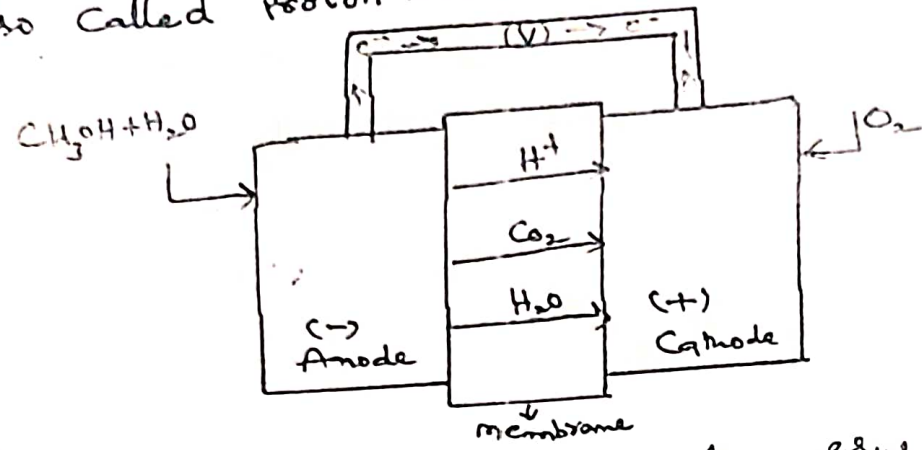 so Called Proton
e⁻ → (V) → e⁻
CH₃OH + H₂O
O₂
H⁺
CO₂
H₂O
(-)
Anode
(+)
Cathode
membrane